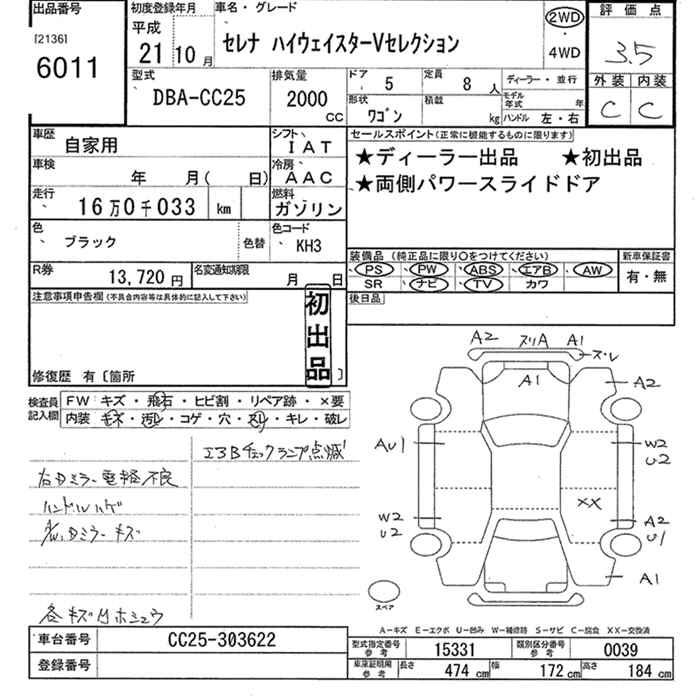 出品番号 初度登録年月 車名・グレード 評価点
[2136] 6011 平成 21 10月 セレナ ハイウェイスターVセレクション 2WD ・ 4WD 3.5
外装 内装
C C
型式 DBA-CC25 排気量 2000 CC ドア 5 定員 8人 ディーラー・並行
形状 ワゴン 積載 kg モデル年式 年 ハンドル 左・右
車歴 自家用 シフト IAT セールスポイント(正常に機能するものに限ります)
車検 年 月( 日) 冷房 AAC ★ディーラー出品 ★初出品
走行 16万0千033 km 燃料 ガソリン ★両側パワースライドドア
色 ブラック 色替 色コード KH3
装備品(純正品に限り○をつけてください) 新車保証書
PS PW ABS エアB AW 有・無
SR ナビ TV カワ
R券 13,720円 名変通知期限 月 日
後日品
注意事項申告欄(不具合内容等は具体的に記入して下さい)
初出品
修復歴 有〔箇所 〕
検査員記入欄 FW キズ・飛石・ヒビ割・リペア跡・×要
内装 キズ・汚れ・コゲ・穴・スレ・キレ・破レ
エアBチェックランプ点滅
右Dミラー電軽不良
ハンドルハゲ
A/W,Dミラーキズ
各キズ
A2 スリA A1
スレ
A1
A2
AU1
W2
U2
XX
W2
U2
A2
U1
A1
スペア
A-キズ E-エクボ U-凹み W-補修跡 S-サビ C-腐食 XX-交換済
車台番号 CC25-303622
登録番号
型式指定番号 参考 15331 類別区分番号 参考 0039
車庫証明用 参考 長さ 474 cm 幅 172 cm 高さ 184 cm